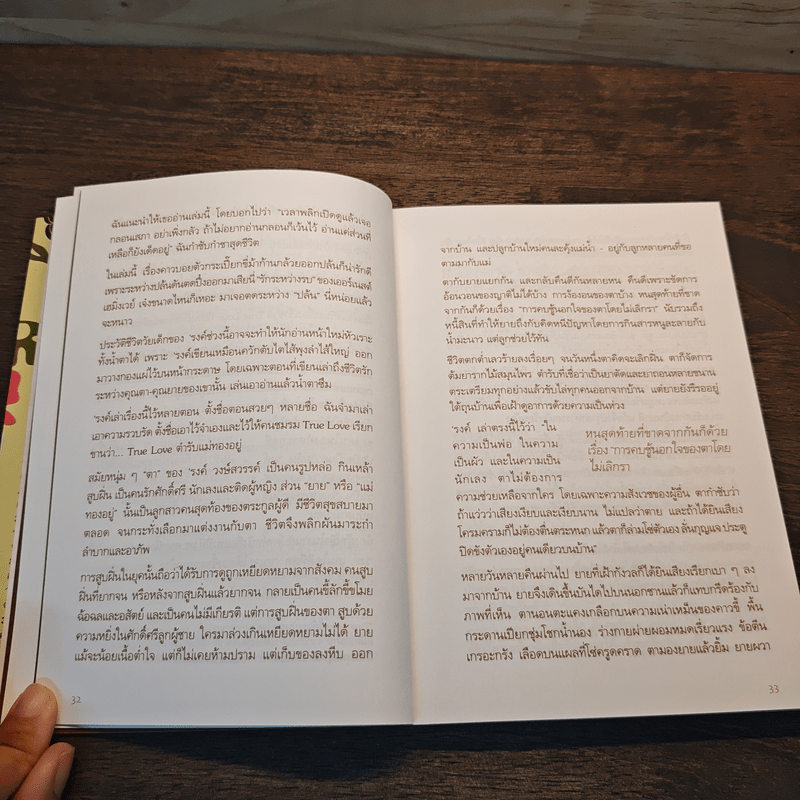 ฉันแนะนำให้เธออ่านเล่มนี้ โดยบอกไปว่า "เวลาพลิกเปิดดูแล้วเจอ
กลอนเสภา อย่าเพิ่งกลัว ถ้าไม่อยากอ่านกลอนก็เว้นไว้ อ่านแค่ส่วนที่
เหลือก็ยังเด็ดอยู่" ฉันกำชับกำชาสุดชีวิต
ในเล่มนี้ เรื่องคาวบอยตัวกระเปี๊ยกขี่ม้าก้านกล้วยออกปล้นก็น่ารักดี
เพราะระหว่างปล้นดันตดปึ้งออกมาเสียนี่ "รักระหว่างรบ" ของเออร์เนสต์
เฮมิงเวย์ เจ๋งขนาดไหนก็เหอะ มาเจอตดระหว่าง "ปล้น" นี่หน่อยแล้ว
จะหนาว
ประวัติชีวิตวัยเด็กของ 'รงค์ช่วงนี้อาจจะทำให้นักอ่านหน้าใหม่หัวเราะ
ทั้งน้ำตาได้ เพราะ 'รงค์เขียนเหมือนควักตับไตไส้พุงลำไส้ใหญ่ ออก
มาวางกองแผ่ไว้บนหน้ากระดาษ โดยเฉพาะตอนที่เขียนเล่าถึงชีวิตรัก
ระหว่างคุณตา-คุณยายของเขานั้น เล่นเอาอ่านแล้วน้ำตาซึม
'รงค์เล่าเรื่องนี้ไว้หลายตอน ตั้งชื่อตอนสวยๆ หลายชื่อ ฉันจำมาเล่า
เอาความรวบรัด ตั้งชื่อเอาไว้จำเองและไว้ให้คนชมรม True Love เรียก
ขานว่า... True Love ตำรับแม่ทองอยู่
สมัยหนุ่ม ๆ "ตา" ของ 'รงค์ วงษ์สวรรค์ เป็นคนรูปหล่อ กินเหล้า
สูบฝิ่น เป็นคนรักศักดิ์ศรี นักเลงและติดผู้หญิง ส่วน "ยาย" หรือ "แม่
ทองอยู่" นั้นเป็นลูกสาวคนสุดท้องของตระกูลผู้ดี มีชีวิตสุขสบายมา
ตลอด จนกระทั่งเลือกมาแต่งงานกับตา ชีวิตจึงพลิกผันมาระกำ
ลำบากและอาภัพ
การสูบฝิ่นในยุคนั้นถือว่าได้รับการดูถูกเหยียดหยามจากสังคม คนสูบ
ฝิ่นที่ยากจน หรือหลังจากสูบฝิ่นแล้วยากจน กลายเป็นคนขี้ลักขี้ขโมย
ฉ้อฉลและอสัตย์ และเป็นคนไม่มีเกียรติ แต่การสูบฝิ่นของตา สูบด้วย
ความหยิ่งในศักดิ์ศรีลูกผู้ชาย ใครมาล่วงเกินเหยียดหยามไม่ได้ ยาย
แม้จะน้อยเนื้อต่ำใจ แต่ก็ไม่เคยห้ามปราม แต่เก็บของลงหีบ ออก
32
จากบ้าน และปลูกบ้านใหม่คนละคุ้งแม่น้ำ - อยู่กับลูกหลายคนที่ขอ
ตามมากับแม่
ตากับยายแยกกัน และกลับคืนดีกันหลายหน คืนดีเพราะขัดการ
อ้อนวอนของญาติไม่ได้บ้าง การง้องอนของตาบ้าง หนสุดท้ายที่ขาด
จากกันก็ด้วยเรื่อง "การคบชู้นอกใจของตาโดยไม่เลิกรา" นับรวมถึง
หนี้สินที่ทำให้ยายถึงกับคิดหนีปัญหาโดยการกินสารหนูละลายกับ
น้ำมะนาว แต่ลูกช่วยไว้ทัน
ชีวิตตกต่ำเลวร้ายลงเรื่อยๆ จนวันหนึ่งตาคิดจะเลิกฝิ่น ตาก็จัดการ
ต้มยารากไม้สมุนไพร ตำรับที่เชื่อว่าเป็นยาตัดและยาถอนหลายขนาน
ตระเตรียมทุกอย่างแล้วขับไล่ทุกคนออกจากบ้าน แต่ยายยังรีรออยู่
ใต้ถุนบ้านเพื่อเฝ้าดูอาการด้วยความเป็นห่วง
'รงค์ เล่าตรงนี้ไว้ว่า "ใน
ความเป็นพ่อ ในความ
เป็นผัว และในความเป็น
นักเลง ตาไม่ต้องการ
หนสุดท้ายที่ขาดจากกันก็ด้วย
เรื่อง "การคบชู้นอกใจของตาโดย
ไม่เลิกรา
ความช่วยเหลือจากใคร โดยเฉพาะความสังเวชของผู้อื่น ตากำชับว่า
ถ้าแว่วว่าเสียงเงียบและเงียบนาน ไม่แปลว่าตาย และถ้าได้ยินเสียง
โครมครามก็ไม่ต้องตื่นตระหนก แล้วตาก็ล่ามโซ่ตัวเอง ลั่นกุญแจ ประตู
ปิดขังตัวเองอยู่คนเดียวบนบ้าน"
หลายวันหลายคืนผ่านไป ยายที่เฝ้ากังวลก็ได้ยินเสียงเรียกเบา ๆ ลง
มาจากบ้าน ยายจึงเดินขึ้นบันไดไปบนนอกชานแล้วก็แทบกรีดร้องกับ
ภาพที่เห็น ตานอนตะแคงเกลือกบนความเน่าเหม็นของคาวขี้ พื้น
กระดานเปียกชุ่มโชกน้ำนอง ร่างกายผ่ายผอมหมดเรี่ยวแรง ข้อตีน
เกรอะกรัง เลือดบนแผลที่โซ่ครูดคราด ตามองยายแล้วยิ้ม ยายผวา
33